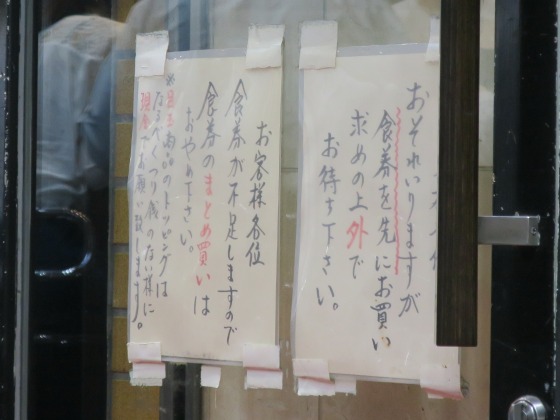 おそれいりますが
食券を先にお買い
求めの上外で
お待ち下さい。
お客様各位
食券が不足しますので
食券のまとめ買いは
おやめ下さい。
商品のトッピングは
なるべくつり銭のない様に
現金でお願い致します。